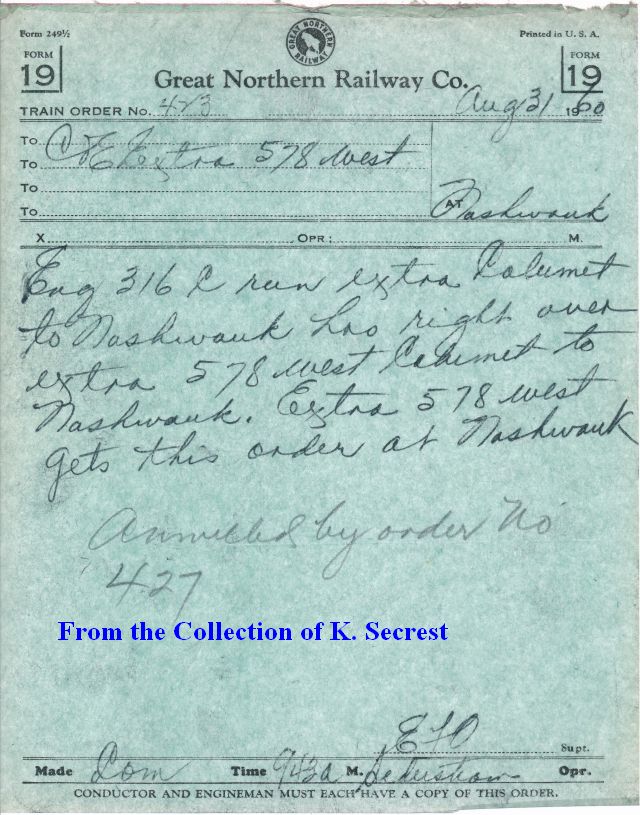 Form 249½
Printed in U. S. A.
GREAT NORTHERN RAILWAY
FORM 19
FORM 19
Great Northern Railway Co.
TRAIN ORDER No. 423 Aug 31 1960
To C&E Extra 578 West
To
To
To
AT Nashwauk
X OPR: M.
Eng 316 C run extra Calumet
to Nashwauk has right over
extra 578 West Calumet to
Nashwauk. Extra 578 West
gets this order at Nashwauk
Annulled by order No
427
From the Collection of K. Secrest
ELO
Supt.
Made Com Time 943a M. Opr.
CONDUCTOR AND ENGINEMAN MUST EACH HAVE A COPY OF THIS ORDER.